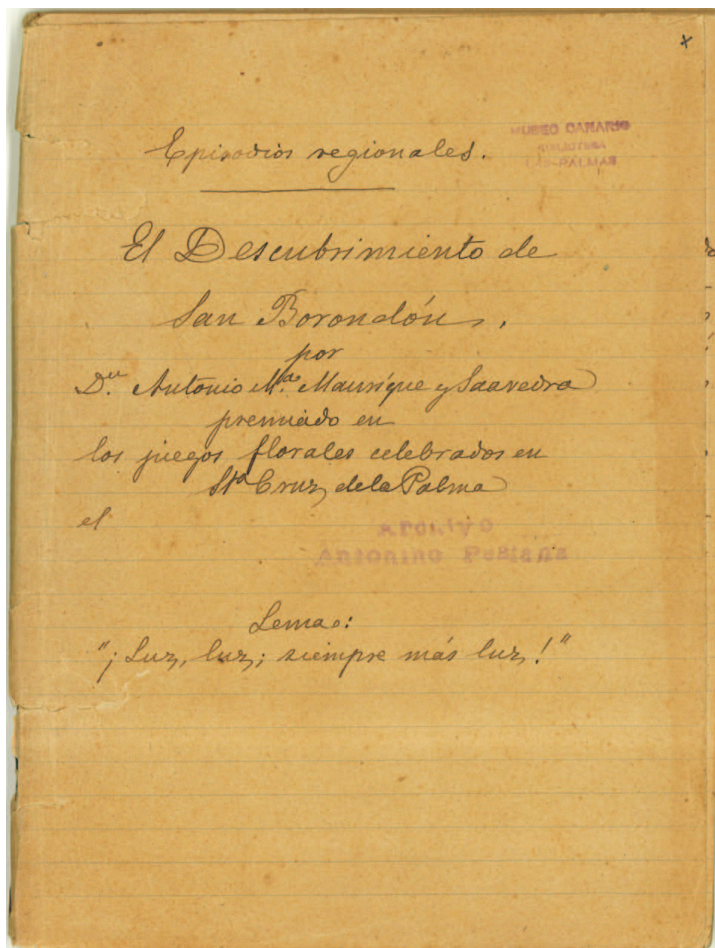 x
MUSEO CANARIO
BIBLIOTECA
LAS-PALMAS
Episodios regionales.
El Descubrimiento de
San Borondón,
por
Dn. Antonio Ma. Manrique y Saavedra
premiado en
los juegos florales celebrados en
Sta Cruz de la Palma
el
Archivo
Antonino Pestana
Lema:
"¡Luz, luz; siempre más luz!"